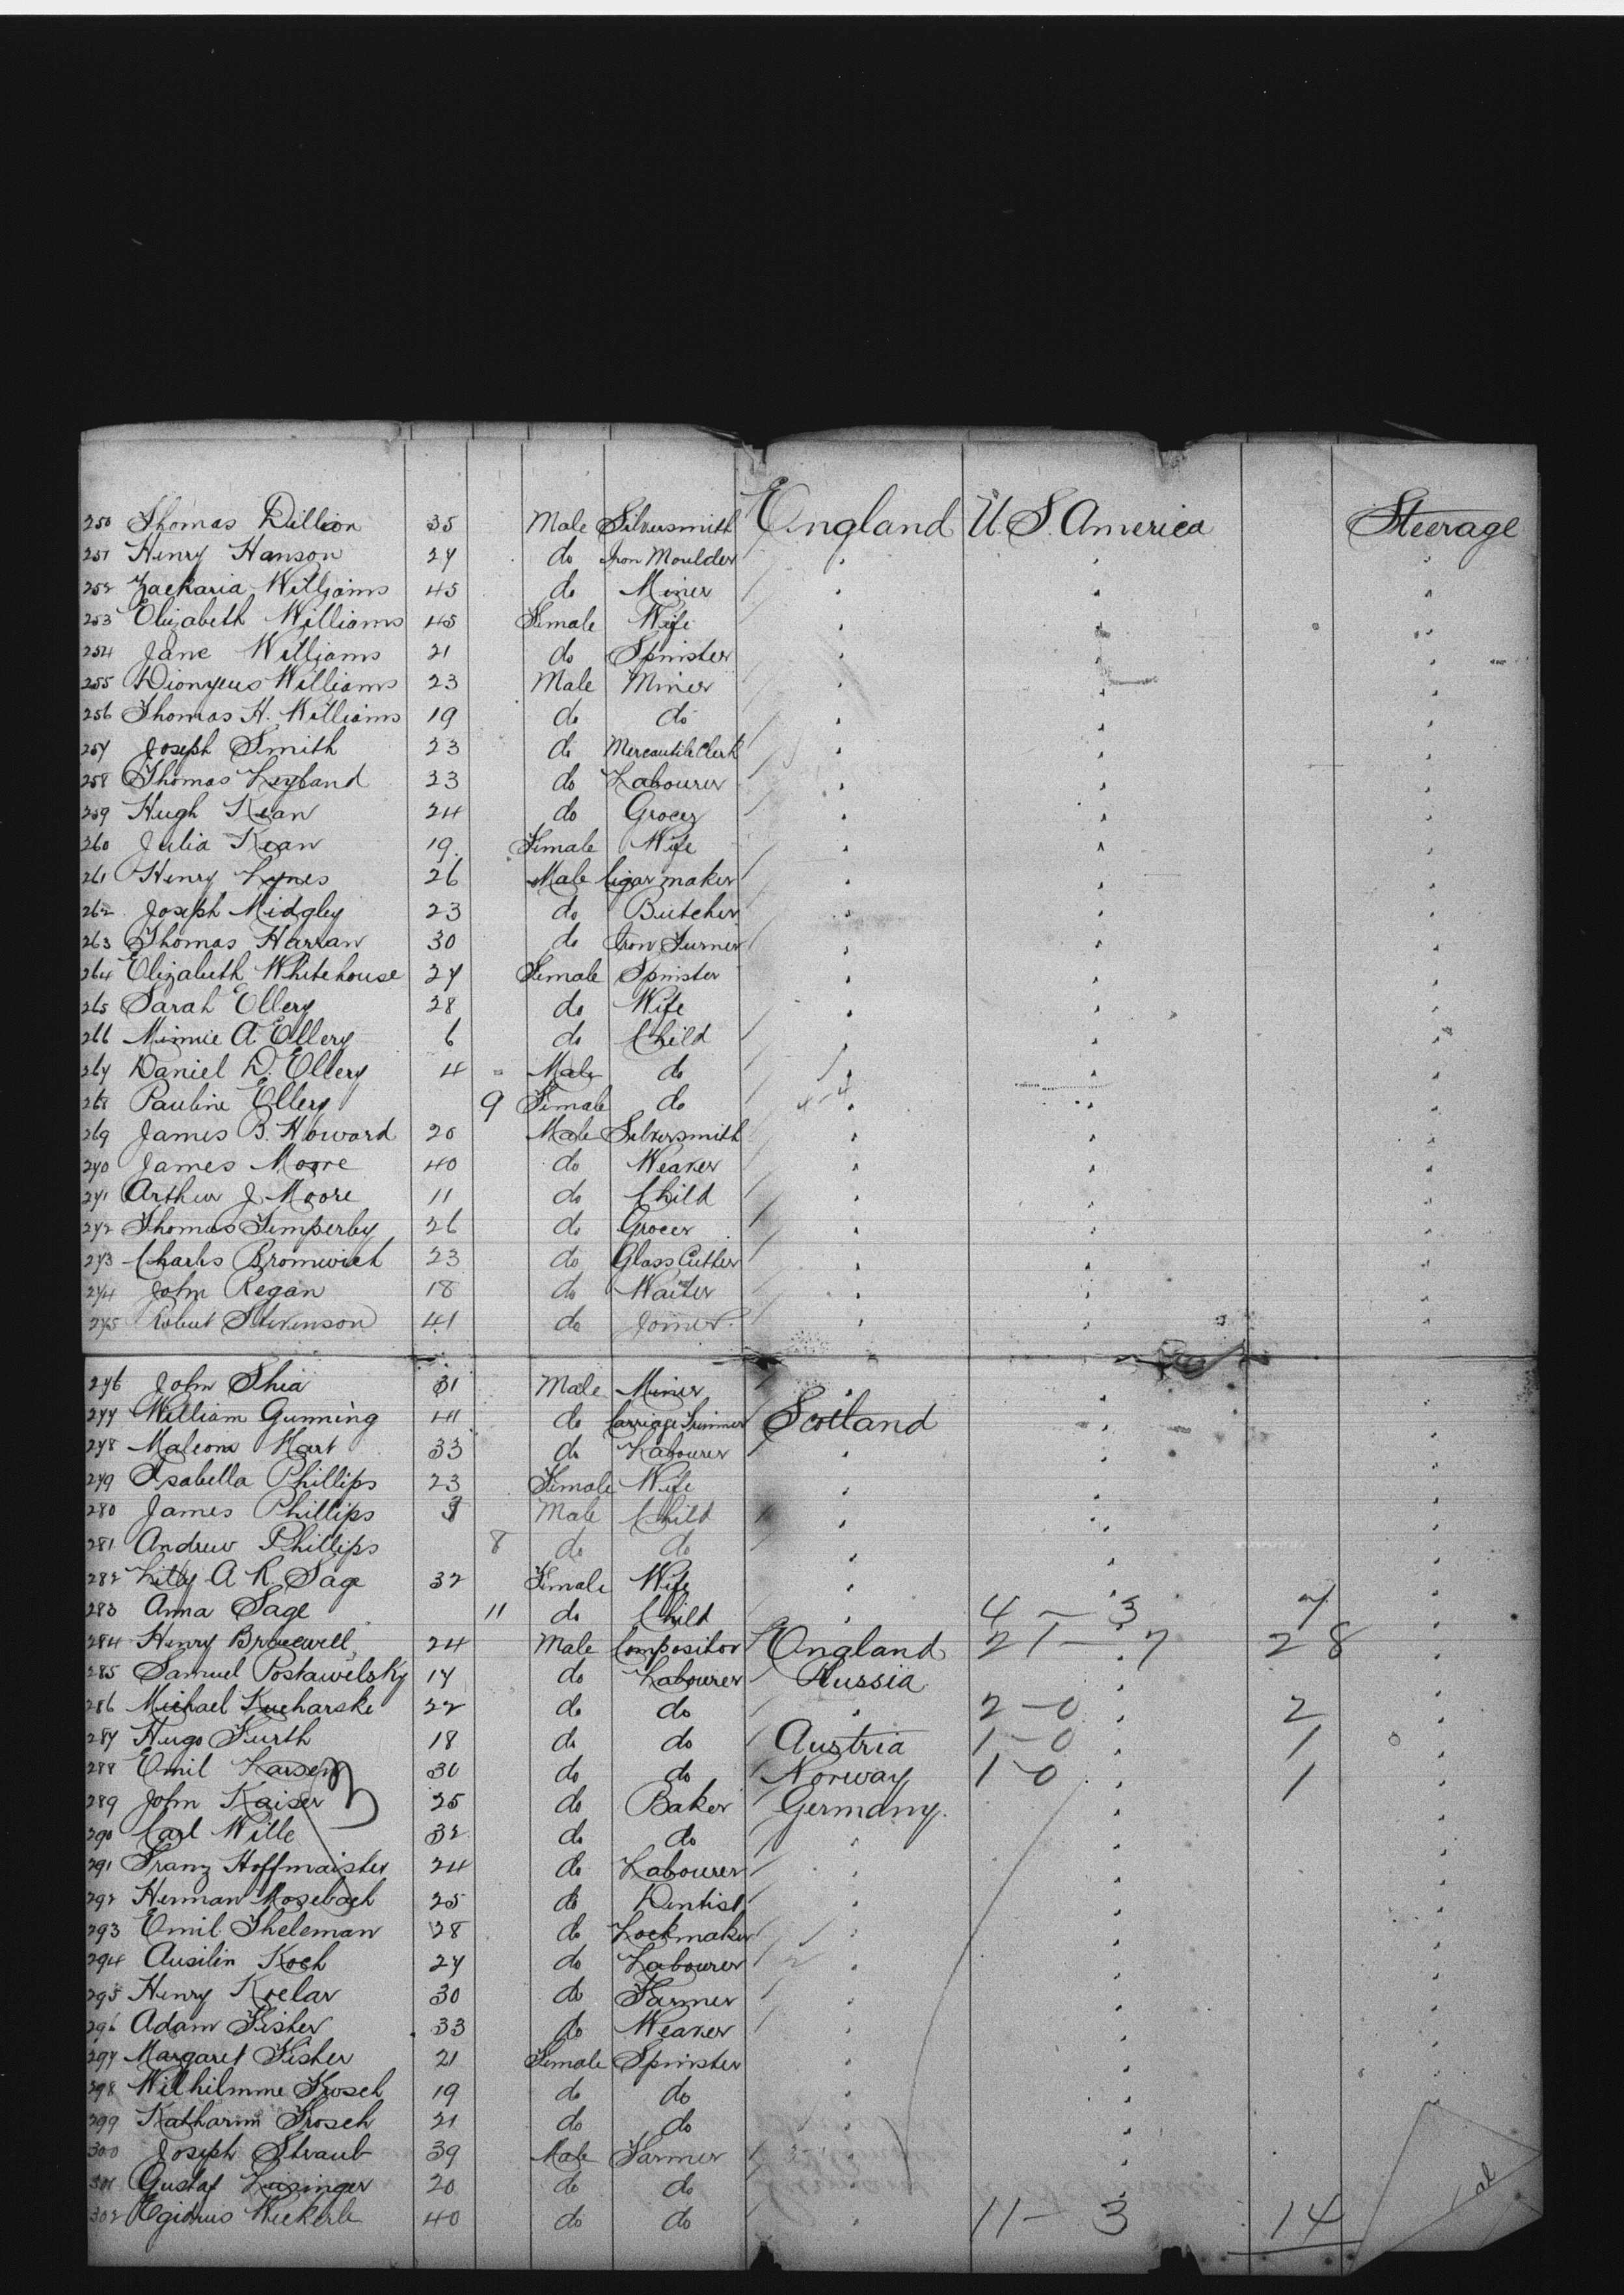 250 Thomas Dillion 35 Male Silversmith England U.S. America Steerage
251 Henry Hanson 27 do Iron Moulder " " "
252 Zackaria Williams 45 do Miner " " "
253 Elizabeth Williams 45 Female Wife " " "
254 Jane Williams 21 do Spinster " " "
255 Dionyeus Williams 23 Male Miner " " "
256 Thomas H. Williams 19 do do " " "
257 Joseph Smith 23 do Mercantile Clerk " " "
258 Thomas Leyland 23 do Labourer " " "
259 Hugh Kean 24 do Grocer " " "
260 Julia Kean 19 Female Wife " " "
261 Henry Lynes 26 Male Cigar maker " " "
262 Joseph Midgley 23 do Butcher " " "
263 Thomas Harran 30 do Iron Turner " " "
264 Elizabeth Whitehouse 27 Female Spinster " " "
265 Sarah Ellery 28 do Wife " " "
266 Minnie A Ellery 6 do Child " " "
267 Daniel D. Ellery 4 Male do " " "
268 Pauline Ellery 9 Female do " " "
269 James B. Howard 20 Male Silversmith " " "
270 James Moore 40 do Weaver " " "
271 Arthur J. Moore 11 do Child " " "
272 Thomas Timperley 26 do Grocer " " "
273 Charles Bromwich 23 do Glass Cutter " " "
274 John Regan 18 do Waiter " " "
275 Robert Stevenson 41 do Joiner " " "
276 John Shia 31 Male Miner " " "
277 William Gunning 41 do Carriage Trimmer Scotland " "
278 Malcom Hart 33 do Labourer " " "
279 Isabella Phillips 23 Female Wife " " "
280 James Phillips 3 Male Child " " "
281 Andrew Phillips 8 do do " " "
282 Litty A R Sage 32 Female Wife " " "
283 Anna Sage 11 do Child " 4 — 3 7 "
284 Henry Bracewell 24 Male Compositor England 21 — 7 28 "
285 Samuel Postawelsky 17 do Labourer Russia " "
286 Michael Kucharske 22 do do " 2 — 0 2 "
287 Hugo Furth 18 do do Austria 1 — 0 1 "
288 Emil Larsen 30 do do Norway 1 — 0 1 "
289 John Kaiser 25 do Baker Germany. " "
290 Carl Wille 32 do do " " "
291 Franz Hoffmaister 24 do Labourer " " "
292 Herman Mosebach 25 do Dentist " " "
293 Emil Theleman 28 do Lockmaker " " "
294 Ausilin Koch 27 do Labourer " " "
295 Henry Krelar 30 do Farmer " " "
296 Adam Fisher 33 do Weaver " " "
297 Margaret Fisher 21 Female Spinster " " "
298 Wilhilmine Frosch 19 do do " " "
299 Katharin Frosch 21 do do " " "
300 Joseph Straub 39 Male Farmer " " "
301 Gustaf Leisinger 20 do do " "
302 Egidius Weckerle 40 do do " 11 — 3 14